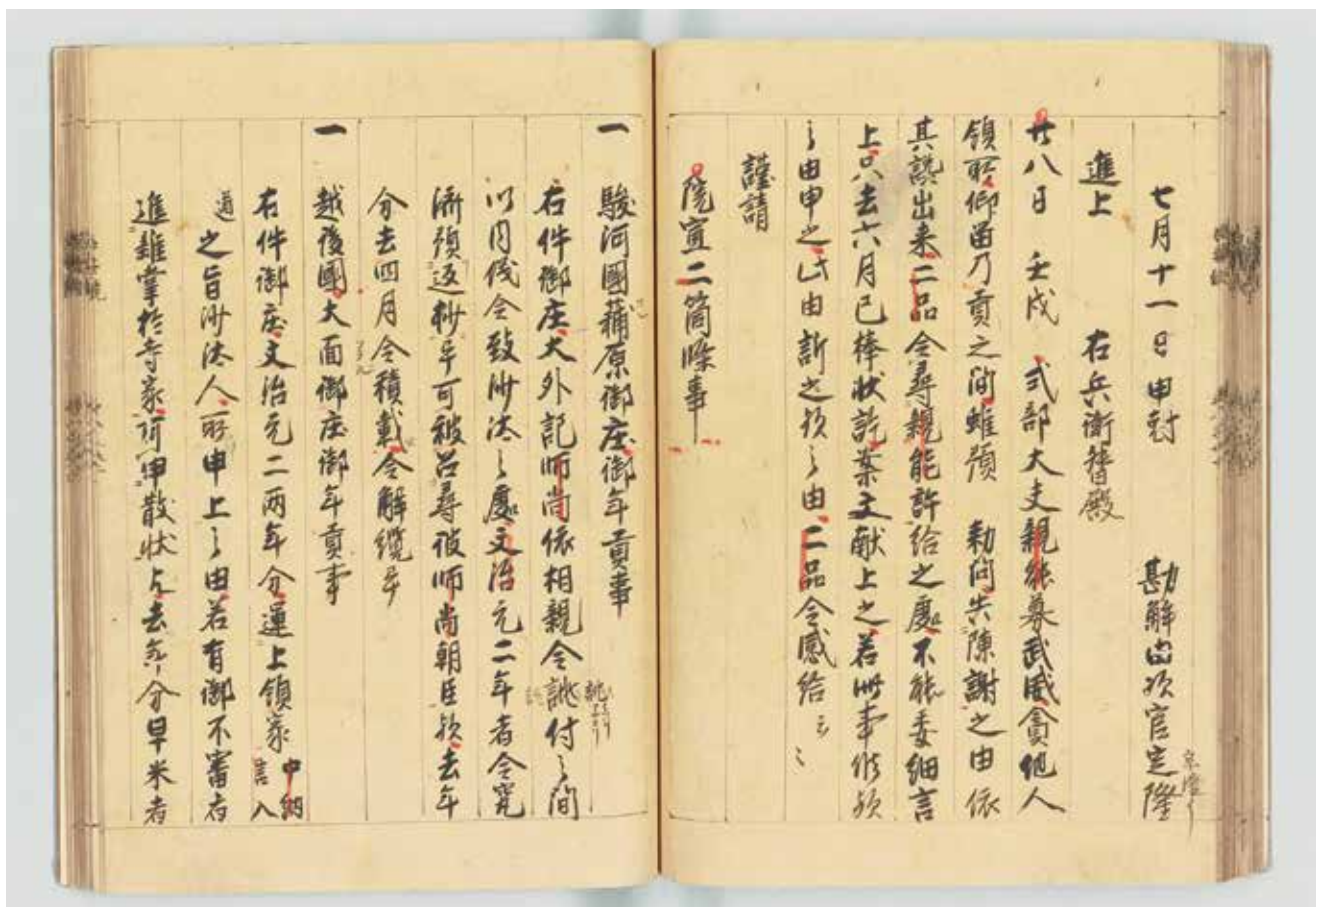 七月十一日申尅　勘解由次官定隆
進上　右兵衛督殿
廿八日　壬戌　式部大夫親能募武威貪他人
領所抑留乃貢之間雖預　勅問失陳謝之由依
其讒出来二品令尋親能許給之處不能委細言
上只去六月已捧状許案文献上之若此事候歟
之由申之此由訴之歟之由二品令感給云々
謹請
院宣二箇條事
一　駿河國蒲原御庄御年貢事
右件御庄大外記師尚依相親令誂付之間
以同儀令致沙汰之處文治元二年者令究
済預返抄畢可被召尋彼師尚朝臣歟去年
分去四月令積載令解纜畢
一　越後國大面御庄御年貢事
右件御庄文治元二両年分運上領家中納言入
道之旨沙汰人所申上之由若有御不審者
進雑掌於寺家可申散状歟去年分早米者